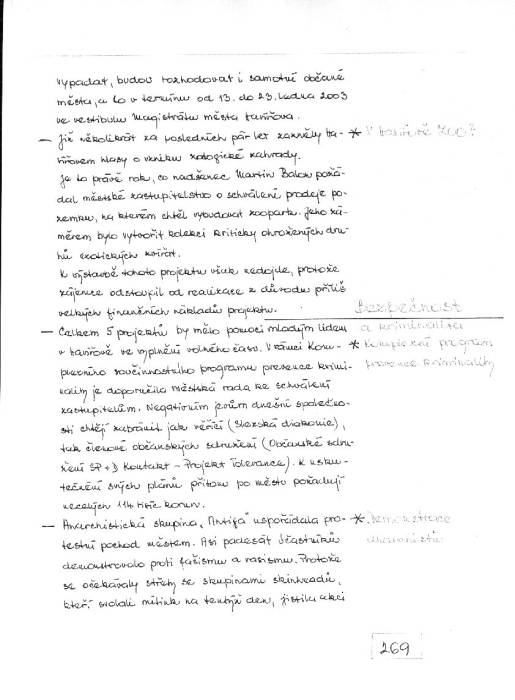 vypadat, budou rozhodovat i samotní občané
města, a to v termínu od 13. do 23. ledna 2003
ve vestibulu Magistrátu města Havířova.
— Již několikrát za posledních pár let zazněly Ha- * V Havířově ZOO?
vířovem hlasy o vzniku zoologické zahrady.
Je to právě rok, co nadšenec Martin Balon požá-
dal městské zastupitelstvo o schválení prodeje po-
zemku, na kterém chtěl vybudovat zoopark. Jeho zá-
měrem bylo vytvořit kolekci kriticky ohrožených dru-
hů exotických zvířat.
K výstavbě tohoto projektu však nedojde, protože
zájemce odstoupil od realizace z důvodu příliš
velkých finančních nákladů projektu. Bezpečnost
— Celkem 5 projektů by mělo pomoci mladým lidem a kriminalita
v Havířově ve vyplnění volného času. V rámci Kom- * Komplexní program
plexního součinnostního programu prevence krimi- prevence kriminality
nality je doporučila městská rada ke schválení
zastupitelům. Negativním jevům dnešní společno-
sti chtějí zabránit jak věřící (Slezská diakonie),
tak členové občanských sdružení (Občanské sdru-
žení SP+D Kontakt – Projekt Tolerance). K usku-
tečnění svých plánů přitom po městu požadují
necelých 114 tisíc korun.
— Anarchistická skupina, Antifa uspořádala pro- * Demonstrace
testní pochod městem. Asi padesát účastníků anarchistů
demonstrovalo proti fašismu a rasismu. Protože
se očekávaly střety se skupinami skinheadů,
kteří svolali mítink na tentýž den, jistila akci
269